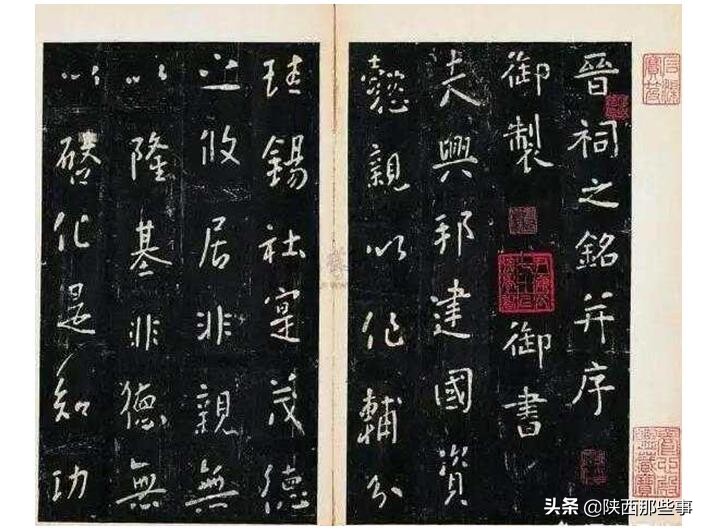 晉祠之銘并序
御製 御書
夫興邦建國資
懿親以作輔分
珪錫社寔茂德
之攸居非親無
以隆基非德無
以啓化是知功
头条 @陕西那些事